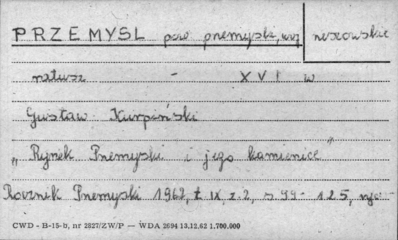 PRZEMYŚL pow. przemyski, woj rzeszowskie
ratusz - XVI w
Gustaw Kurpiński
"Rynek Przemyski i jego kamienice"
Rocznik Przemyski 1962, t. IX, z. 2, s. 99-125, ryc.
CWD - B-15-b, nr 2827/ZW/P — WDA 2694 13.12.62 1.700.000